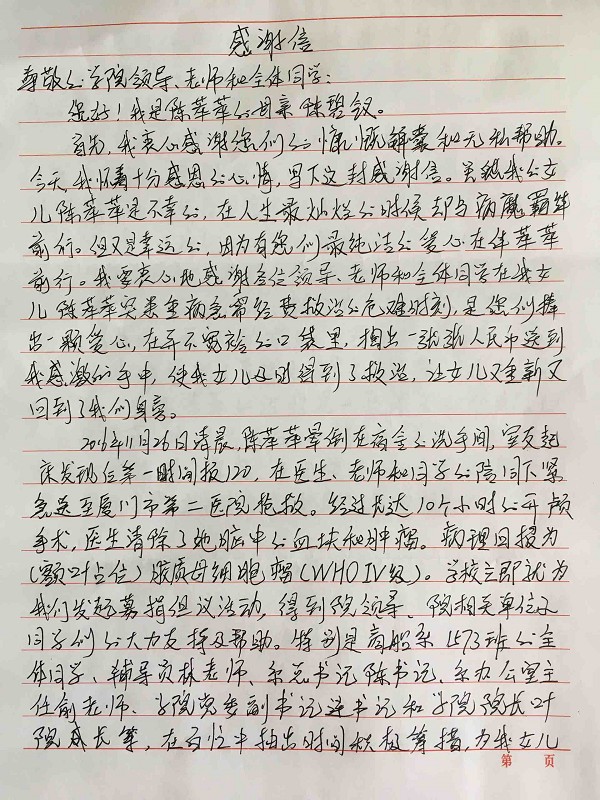 感谢信
尊敬的学院领导、老师和全体同学：
您好！我是陈苹苹的母亲陈碧钗。
首先，我衷心感谢您们的慷慨解囊和无私帮助。
今天，我怀着十分感恩的心情，写下这封感谢信。虽然我的女
儿陈苹苹是不幸的，在人生最灿烂的时候却与病魔霸绊
前行。但又是幸运的，因为有您们最纯洁的爱心在伴苹苹
前行。我要衷心地感谢各位领导、老师和全体同学在我女
儿陈苹苹突患重病急需经费救治的危难时刻，是您们捧
出一颗爱心，在并不宽裕的口袋里，掏出一张张人民币送到
我感激的手中，使我女儿及时得到了救治，让女儿又重新又
回到了我们身旁。
2016年11月26日清晨，陈苹苹晕倒在宿舍的洗手间，室友起
床发现后第一时间报120，在医生、老师和同学的陪同下紧
急送至厦门市第二医院抢救。经过长达10个小时的开颅
手术，医生清除了她脑中的血块和肿瘤。病理回报为
(额叶占位)胶质母细胞瘤(WHO IV级)。学校立即就为
我们发起募捐倡议活动，得到院领导、院相关单位及
同学们的大力支持及帮助。特别是商船系1573班的全
体同学、辅导员林老师、系总书记陈书记、系办公室主
任俞老师、学院党委副书记连书记和学院院长叶
院长等，在百忙中抽出时间积极筹措，为我女儿
第 页